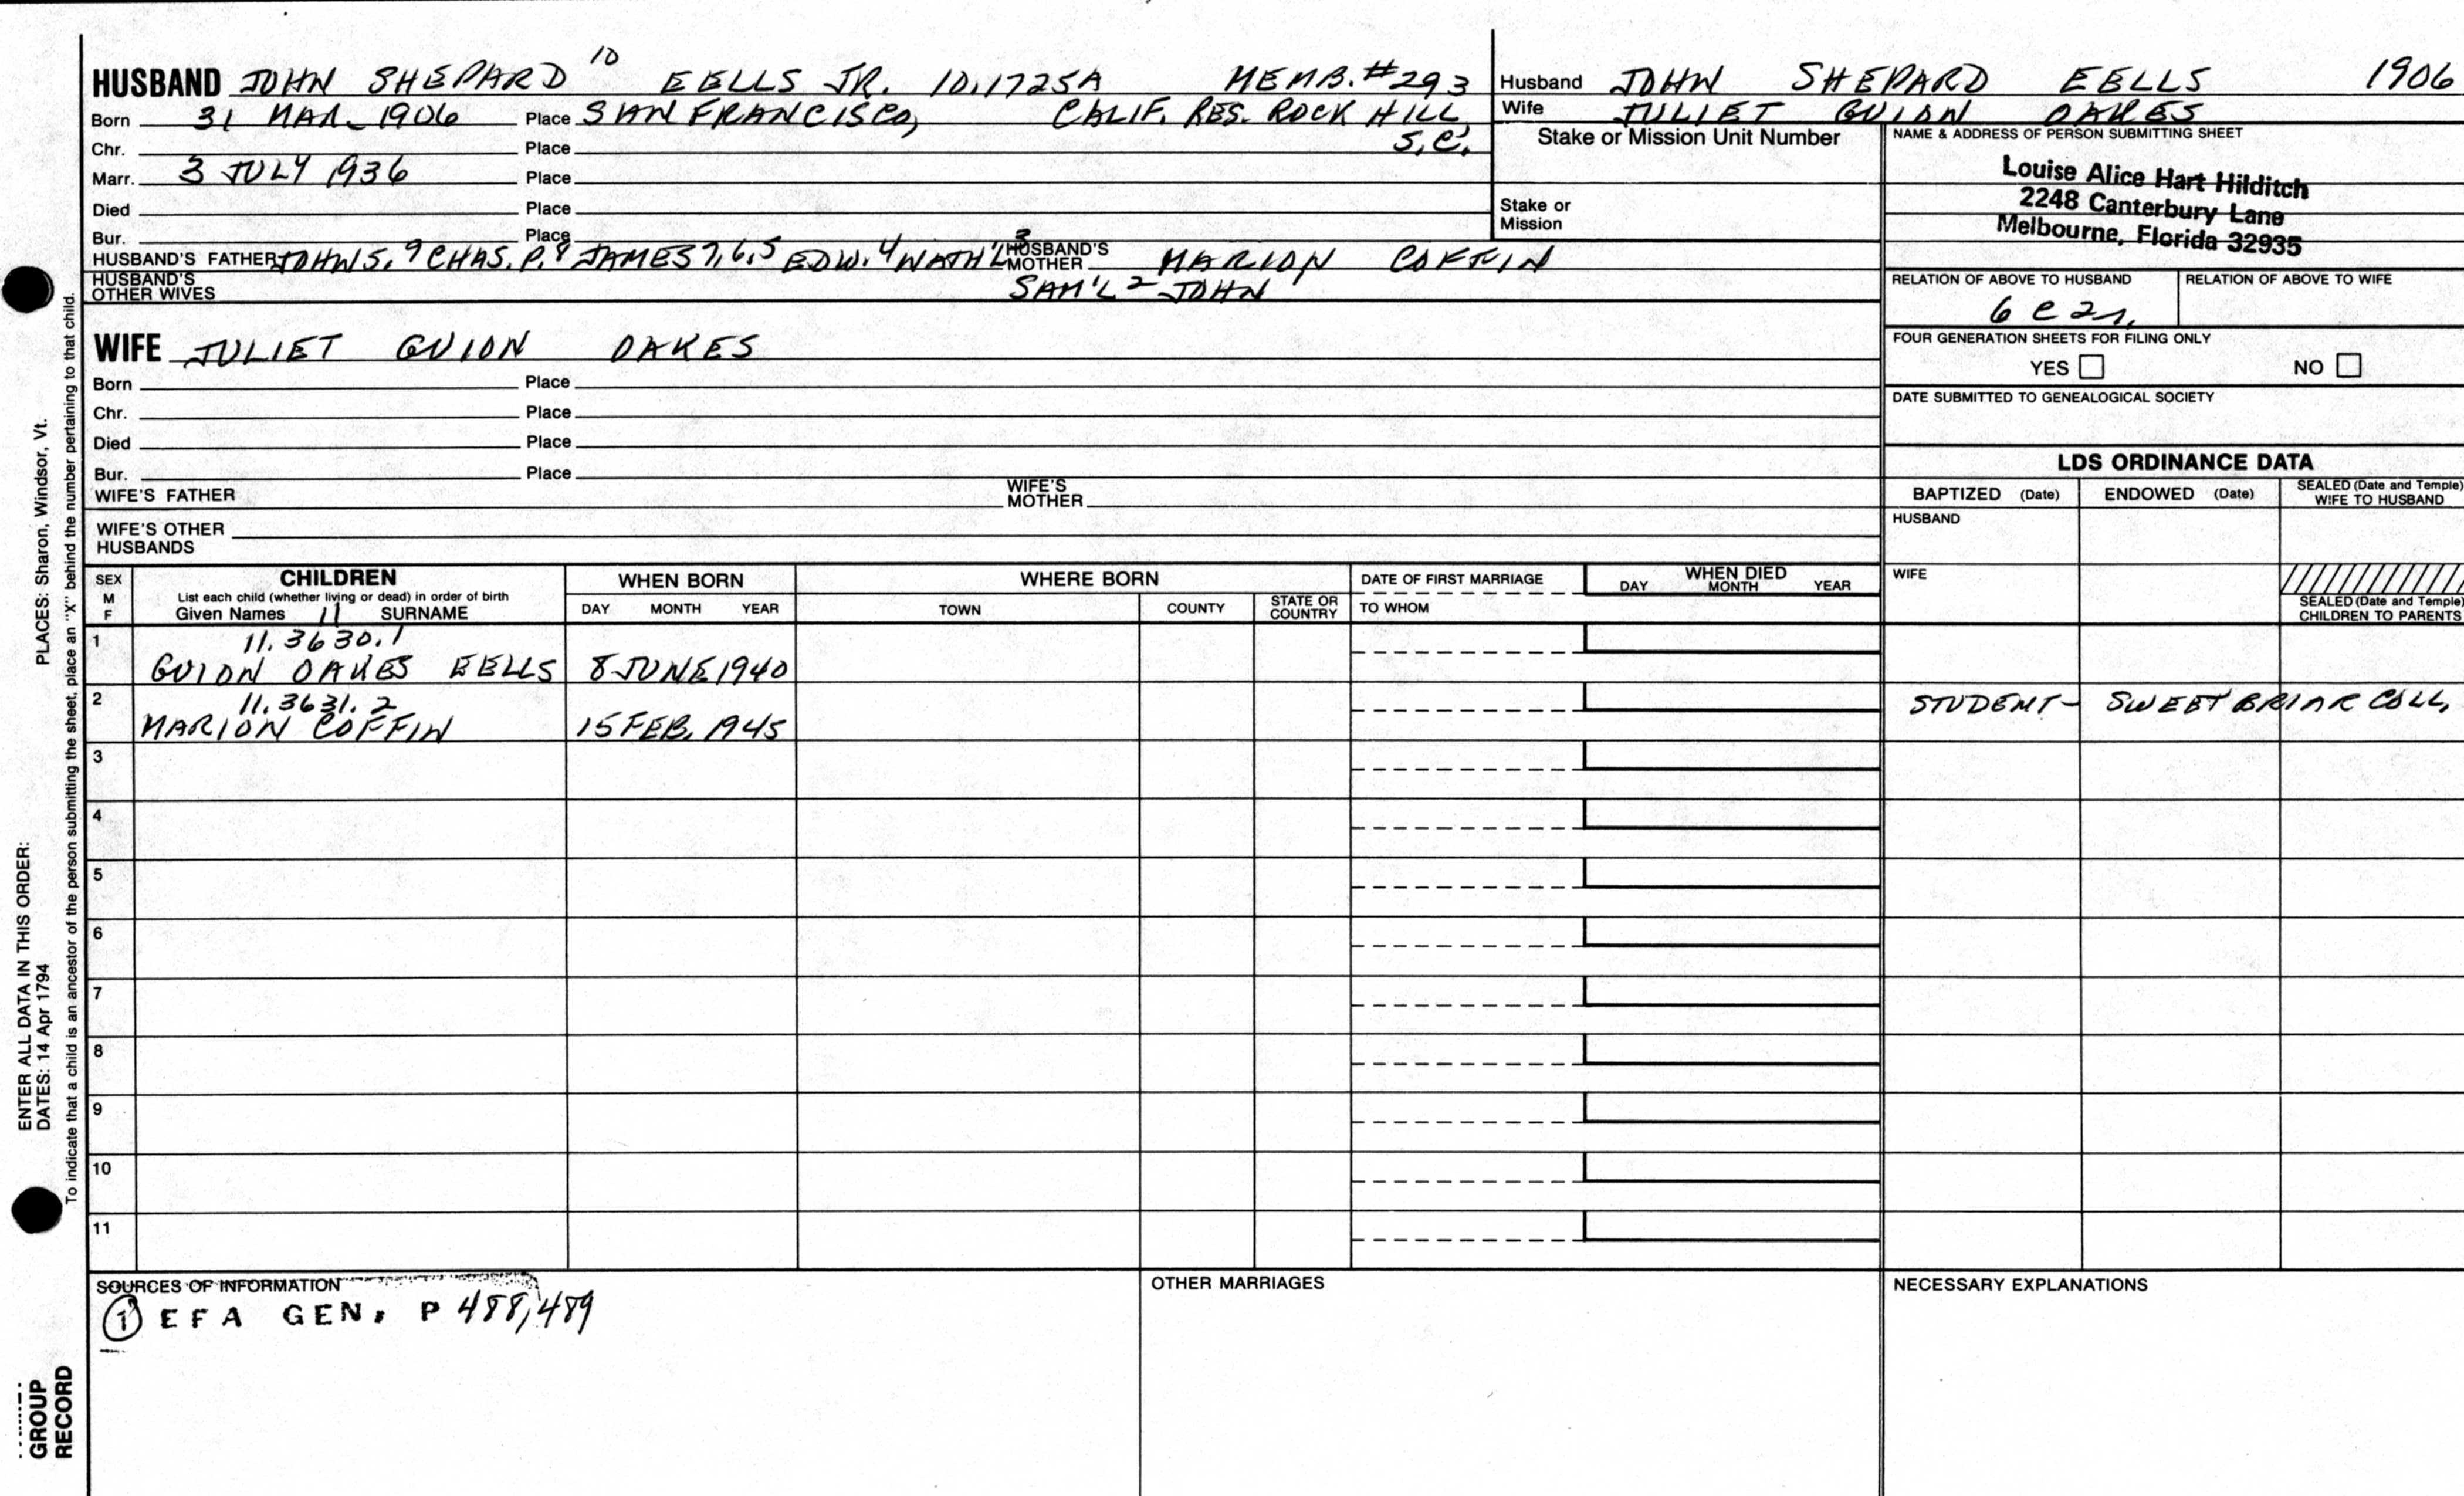 HUSBAND JOHN SHEPARD 10 EELLS JR. 10,1725A MEMB.#293
Born 31 MAR. 1906 Place SAN FRANCISCO, CALIF. RES. ROCK HILL
Chr. Place S.C.
Marr. 3 JULY 1936 Place
Died Place
Bur. Place
HUSBAND'S FATHER JOHN S.9 CHAS. P.8 JAMES 7,6,5 EDW.4 NATH'L 3 HUSBAND'S MOTHER MARION COFFIN
HUSBAND'S OTHER WIVES SAM'L 2 JOHN 1
Husband JOHN SHEPARD EELLS 1906
Wife JULIET GUION OAKES
Stake or Mission Unit Number
Stake or
Mission
NAME & ADDRESS OF PERSON SUBMITTING SHEET
Louise Alice Hart Hilditch
2248 Canterbury Lane
Melbourne, Florida 32935
RELATION OF ABOVE TO HUSBAND RELATION OF ABOVE TO WIFE
6 C 2r.
FOUR GENERATION SHEETS FOR FILING ONLY
YES NO
DATE SUBMITTED TO GENEALOGICAL SOCIETY
WIFE JULIET GUION OAKES
Born Place
Chr. Place
Died Place
Bur. Place
WIFE'S FATHER WIFE'S MOTHER
WIFE'S OTHER
HUSBANDS
LDS ORDINANCE DATA
BAPTIZED (Date) ENDOWED (Date) SEALED (Date and Temple) WIFE TO HUSBAND
HUSBAND
WIFE
SEALED (Date and Temple)
CHILDREN TO PARENTS
SEX
M
F
CHILDREN
List each child (whether living or dead) in order of birth
Given Names 11 SURNAME
WHEN BORN
DAY MONTH YEAR
WHERE BORN
TOWN COUNTY STATE OR COUNTRY
DATE OF FIRST MARRIAGE
TO WHOM
WHEN DIED
DAY MONTH YEAR
1 11.3630.1
GUION OAKES EELLS 8 JUNE 1940
2 11.3631.2 STUDENT - SWEET BRIAR COLL.
MARION COFFIN 15 FEB. 1945
3
4
5
6
7
8
9
10
11
SOURCES OF INFORMATION
1 EFA GEN. P 488,489
OTHER MARRIAGES
NECESSARY EXPLANATIONS
PLACES: Sharon, Windsor, Vt.
ENTER ALL DATA IN THIS ORDER:
DATES: 14 Apr 1794
To indicate that a child is an ancestor of the person submitting the sheet, place an "X" behind the number pertaining to that child.
GROUP
RECORD